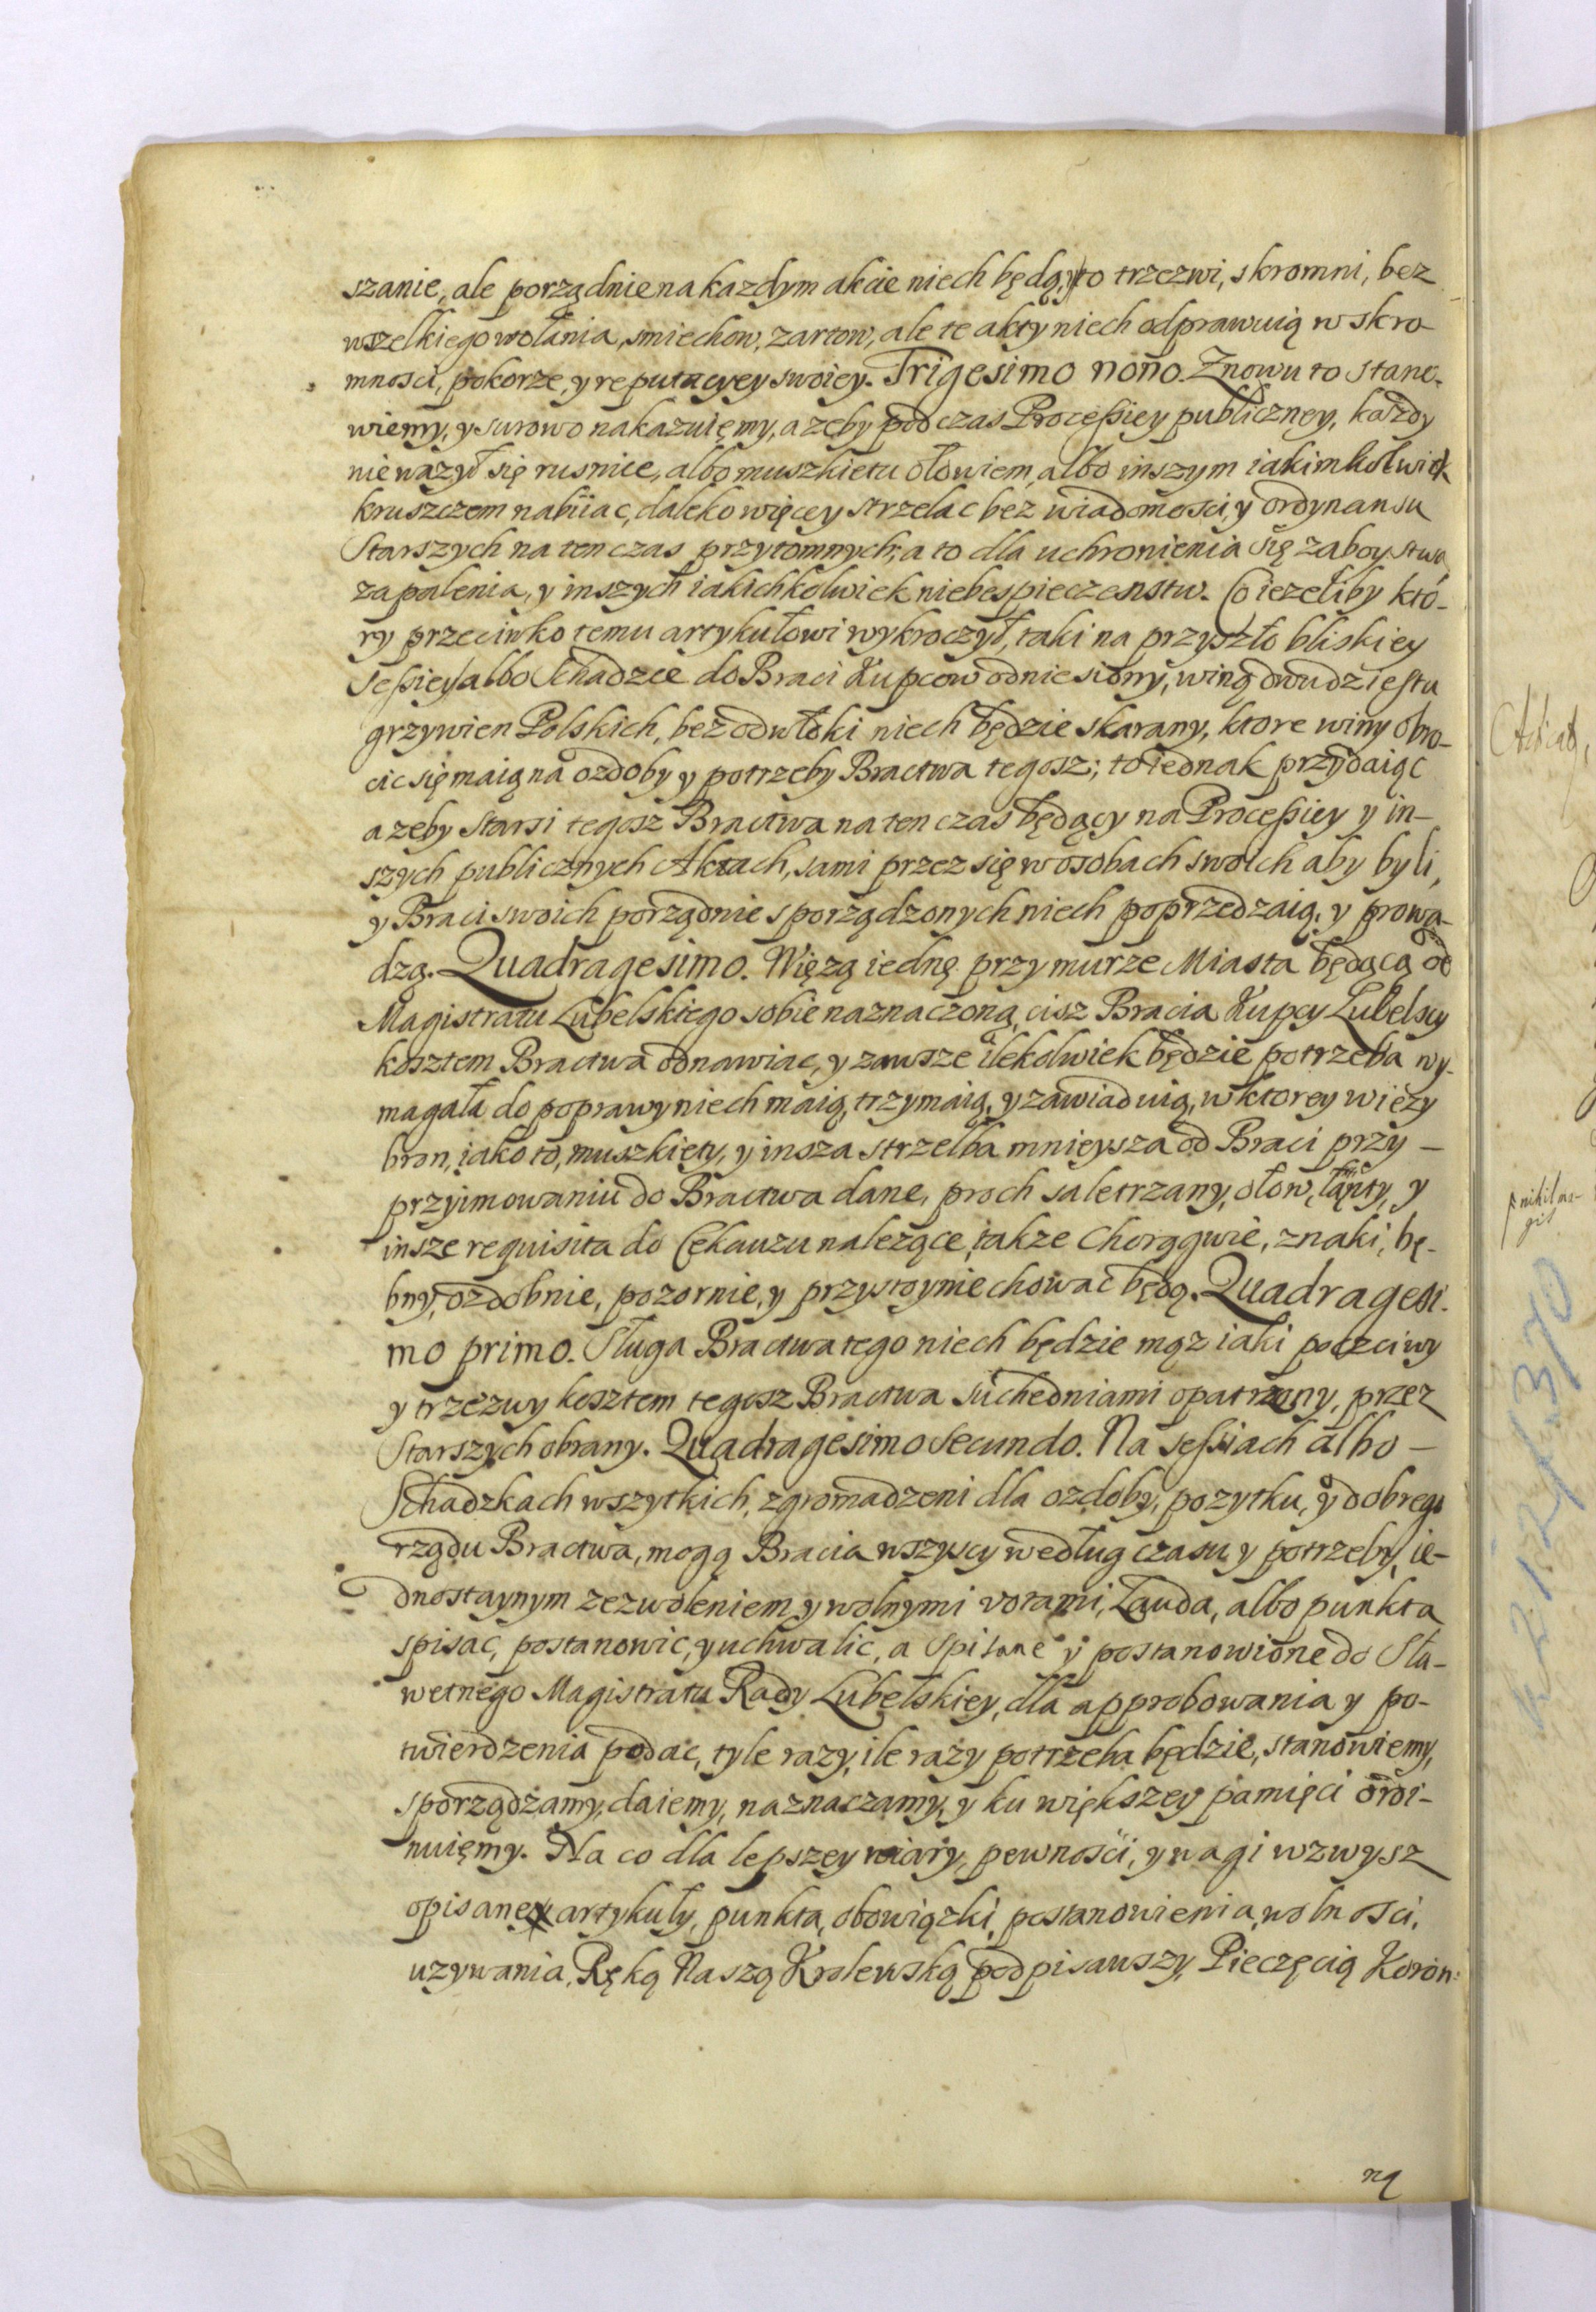 szanie, ale porządnie na kazdym akcie niech będą, y to trzezwi, skromni, bez
wszelkiego wołania, smiechow, zartow, ale te akty niech odprawuią w skro-
mnosci, pokorze, y reputacyey swoiey. Trigesimo nono. Znowu to stano-
wiemy, y surowo nakazuięmy, a zeby pod czas Processiey publiczney, kazdy
nie wazył się rusnice, albo muszkietu ołowiem, albo inszym iakimkolwiek
kruszczem nabiiac, daleko więcey strzelac bez wiadomosci, y ordynansu
Starszych na ten czas przytomnych, a to dla uchronienia się zaboystwa
zapalenia, y inszych iakichkolwiek niebespieczenstw. Co iezeliby któ-
ry przeciwko temu artykułowi wykroczył, taki na przyszło bliskiey
Sessiey albo Schadzce do Braci Kupcow odniesiony, winą dwudziestu
grzywien Polskich, bez odwłoki niech będzie skarany, ktore winy obro-
cic się maią na ozdoby y potrzeby Bractwa tegosz; to iednak przydaiąc
a zeby Starsi tegosz Bractwa na ten czas będący na Processiey y in-
szych publicznych Aktach, sami przez się w osobach swoich aby byli,
y Braci swoich porządnie sporządzonych niech poprzedzaią, y prowa-
dzą. Quadragesimo. Więzą iednę przy murze Miasta będącą od
Magistratu Lubelskiego sobie naznaczoną, cisz Bracia Kupcy Lubelscy
kosztem Bractwa odnawiac, y zawsze ilekolwiek będzie potrzeba wy-
magała do poprawy niech maią, trzymaią, y zawiaduią, w ktorey wiezy
bron, iako to, muszkiety, y insza strzelba mnieysza od Braci przy -
przyimowaniu do Bractwa dane, proch saletrzany, ołow, łąnty, y
insze requisita do Cekauzu nalezące, takze Chorągwie, znaki, bę-
bny, ozdobnie, pozornie, y przystoynie chowac będą. Quadragesi-
mo primo. Sługa Bractwa tego niech będzie mąz iaki poczciwy
y trzezwy kosztem tegosz Bractwa suchedniami opatrzony, przez
Starszych obrany. Quadragesimo Secundo. Na sessiach albo -
Schadzkach wszytkich, zgromadzeni dla ozdoby, pozytku, y dobrego
rządu Bractwa, mogą Bracia wszyscy według czasu y potrzeby, ie-
dnostaynym zezwoleniem y wolnymi votami, Lauda, albo punkta
spisac, postanowic, y uchwalic, a spisane y postanowione do Sła-
wetnego Magistratu Rady Lubelskiey, dla approbowania y po-
twierdzenia podac, tyle razy, ile razy potrzeba będzie, stanowiemy,
sporządzamy, daiemy, naznaczamy, y ku większey pamięci ordi-
nuięmy. Na co dla lepszey wiary, pewnosci, y wagi wzwysz
opisane artykuły, punkta, obowiązki, postanowienia, wolnosci,
uzywania, Ręką Naszą Krolewską podpisawszy, Pieczęcią Koron:
ną